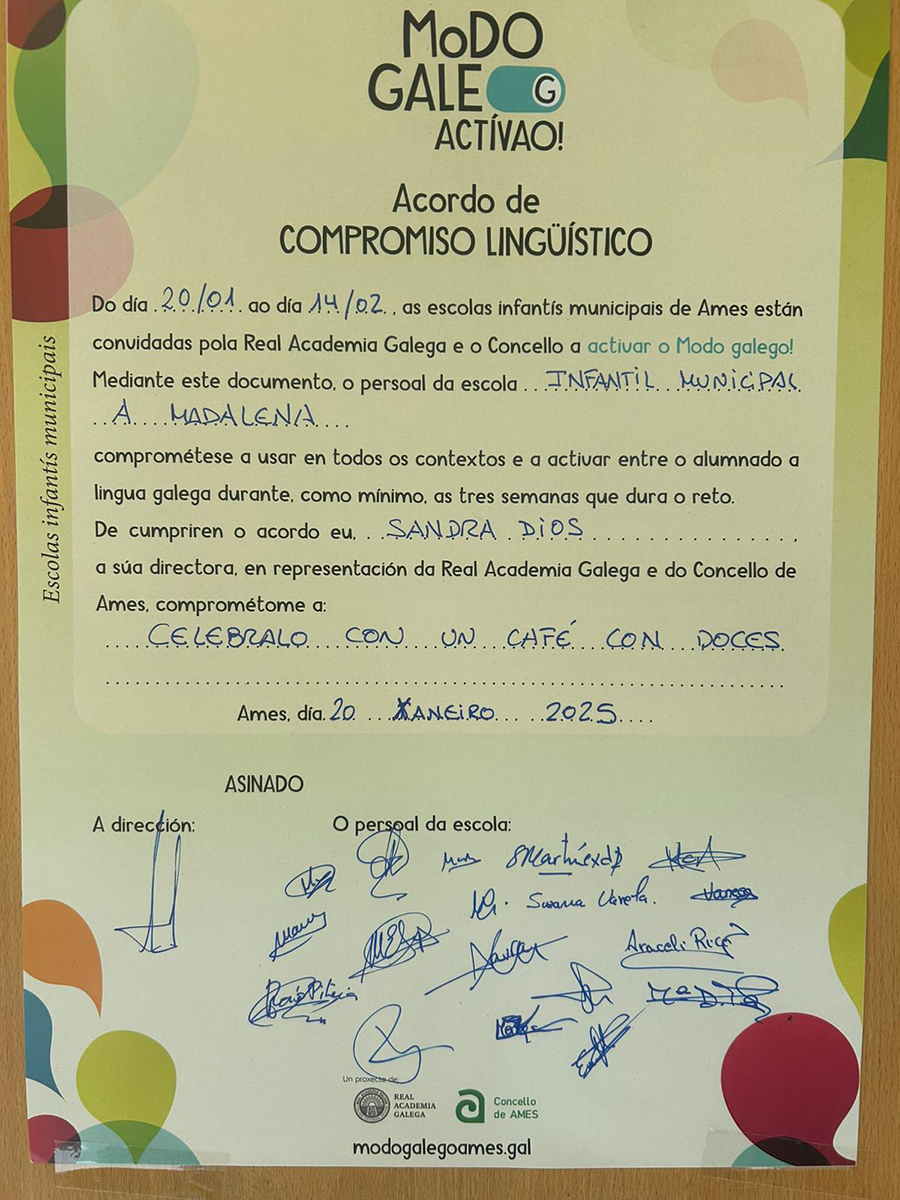 MoDO
GALEGO
ACTÍVAO!
Acordo de
COMPROMISO LINGÜÍSTICO
Do día 20/01 ao día 14/02, as escolas infantís municipais de Ames están
convidadas pola Real Academia Galega e o Concello a activar o Modo galego!
Mediante este documento, o persoal da escola INFANTIL MUNICIPAL
A MADALENA
comprométese a usar en todos os contextos e a activar entre o alumnado a
lingua galega durante, como mínimo, as tres semanas que dura o reto.
De cumpriren o acordo eu, SANDRA DIOS,
a súa directora, en representación da Real Academia Galega e do Concello de
Ames, comprométome a:
CELEBRALO CON UN CAFÉ CON DOCES
Ames, día 20 XANEIRO 2025
Escolas infantís municipais
ASINADO
A dirección:
O persoal da escola:
Susana Varela.
Vanesa
Araceli
Un proxecto de:
REAL
ACADEMIA
GALEGA
Concello
de AMES
modogalegoames.gal